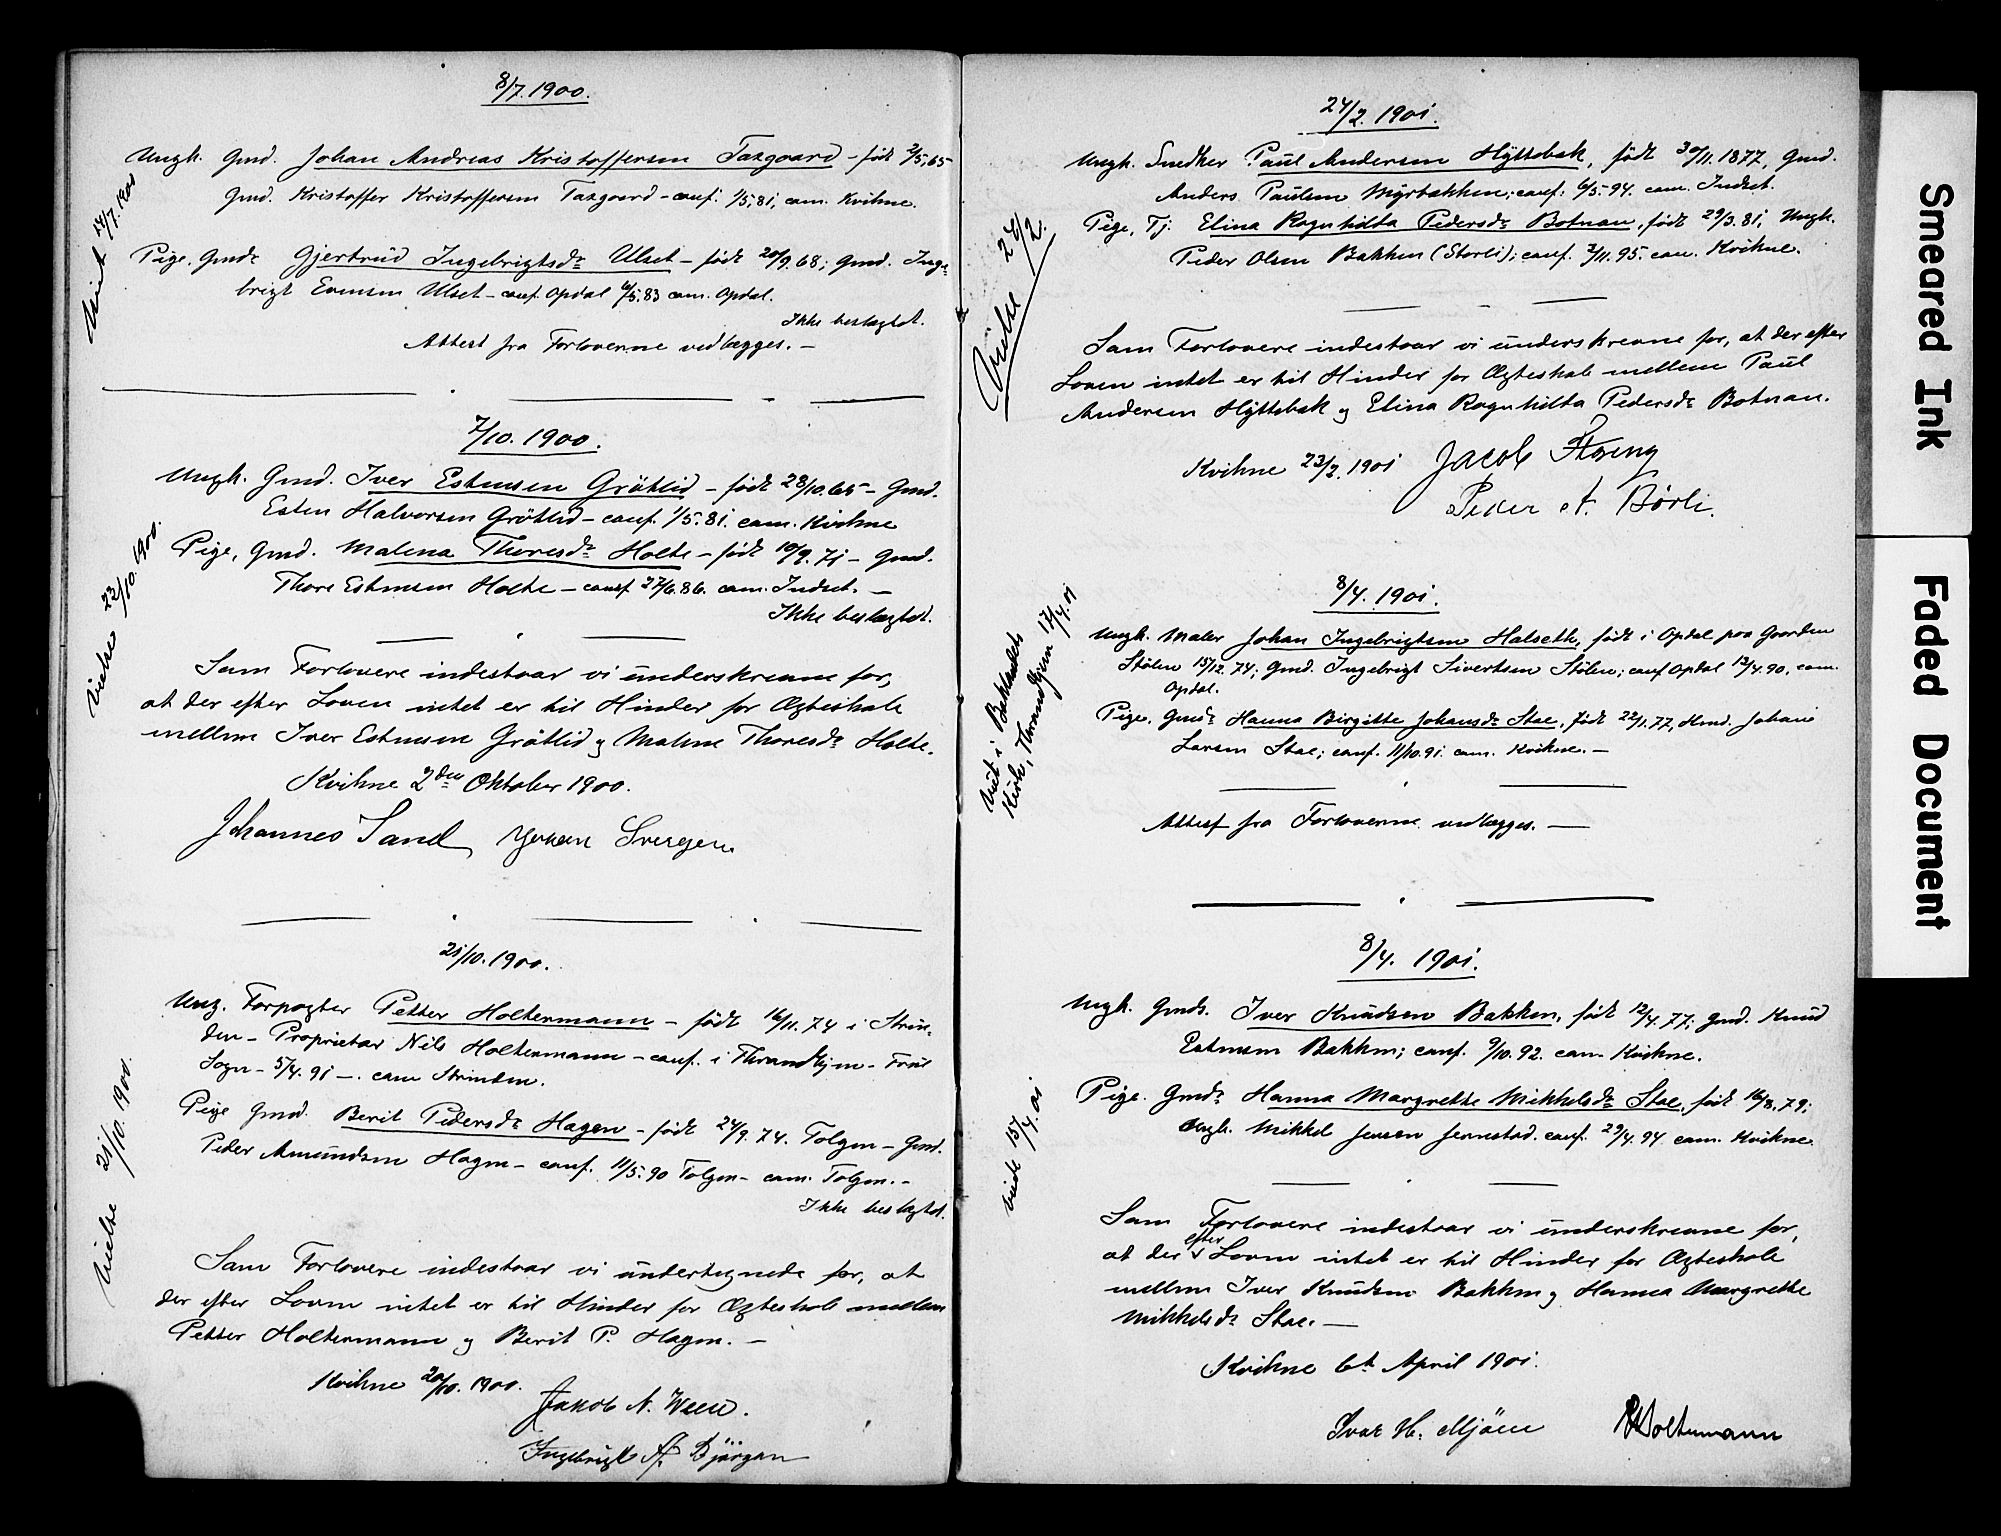 8/7. 1900.
Ungk. Gmd. Johan Andreas Kristoffersen Taxgaard - født 2/5.65
Gmd. Kristoffer Kristoffersen Taxgaard - conf. 1/5.81, cam. Kvikne.
Pige. Gmdr Gjertrud Ingebrigtsdr Ulset - født 20/9.68; Gmd. Inge-
brigt Evensen Ulset - conf. Opdal 6/5.83 cam. Opdal.
Ikke beslægtet.
Attest fra Forloverne vedlægges. -
Viet 14/7.1900
7/10. 1900.
Ungk. Gmd. Iver Estensen Gråtlid - født 28/10.65 - Gmd.
Esten Halvorsen Gråtlid - conf. 1/5.81. cam. Kvikne
Pige, Gmd. Malena Thoresdr Holte - født 10/9.71 - Gmd.
Thore Estensen Holte - conf 27/6.86. cam. Indset. -
Ikke beslægtet.
Vielse 23/10.1900.
Som Forlovere indestaar vi underskrevne for,
at der efter Loven intet er til Hinder for Ægteskab
mellem Iver Estensen Gråtlid og Malene Thoresdr Holte.
Kvikne 2den Oktober 1900.
Johannes Sand Johan
21/10. 1900.
Ung. Forpagter Petter Holtermann - født 16/11.74 i Strin-
den - Proprietær Nils Holtermann - conf. i Thrandhjem - Frue
Sogn - 5/4.91 -. cam Strinden.
Pige Gmd. Berit Pedersdr Hagen - født 24/9.74. Tolgen - Gmd.
Peder Amundsen Hagen - conf. 11/5.90 Tolgen - cam. Tolgen. -
Ikke beslægtet.
Vielse 21/10.1900.
Som Forlovere indestaar vi undertegnede for, at
der efter Loven intet er til Hinder for Ægteskab mellem
Petter Holtermann og Berit P. Hagen. -
Kvikne 20/10.1900.
Jakob N. Ween.
Ingebrigt A. Bjørgan
24/2. 1901.
Ungk. Snedker Paul Andersen Hyttebak, født 30/11.1877, Gmd.
Anders Paulsen Myrbakken; conf. 6/5.94. cam. Indset.
Pige, Tj. Elina Ragnhilda Pedersdr Botnan, født 29/3.81, Ungk.
Peder Olsen Bakken (Storli); conf. 3/11.95. cam. Kvikne.
Vielse 24/2.
Som Forlovere indestaar vi underskrevne for, at der efter
Loven intet er til Hinder for Ægteskab mellem Paul
Andersen Hyttebak og Elina Ragnhilda Pedersdr Botnan.
Kvikne 23/2.1901 Jacob Støeng
Peder A. Børli.
8/4. 1901.
Ungk. Maler Johan Ingebrigtsen Halseth, født i Opdal paa Gaarden
Stølen 15/12.74; Gmd. Ingebrigt Sivertsen Stølen; conf Opdal 13/4.90, cam.
Opdal.
Pige. Gmdr Hanna Birgitte Johansdr Stae, født 22/1.77, Hmd. Johan
Larsen Stae; conf. 11/10.91. cam. Kvikne. -
Viet i Baklandets
Kirke, Thrandhjem 17/4.01
Attest fra Forloverne vedlægges. -
8/4. 1901.
Ungk. Gmds. Iver Knudsen Bakken, født 12/4.77; Gmd. Knud
Estensen Bakken; conf. 9/10.92. cam. Kvikne.
Pige. Gmdr Hanna Margrethe Mikkelsdr Stae, født 16/8.79;
Ungk. Mikkel Jensen Jennestad. conf. 29/4.94 cam. Kvikne.
Viede 15/4.01
Som Forlovere indestaar vi underskrevne for,
at der efter Loven intet er til Hinder for Ægteskab
mellem Iver Knudsen Bakken og Hanna Margrethe
Mikkelsdr Stae. -
Kvikne 6te April 1901.
Ivar H. Mjøen Holtermann
Smeared Ink
Faded Document